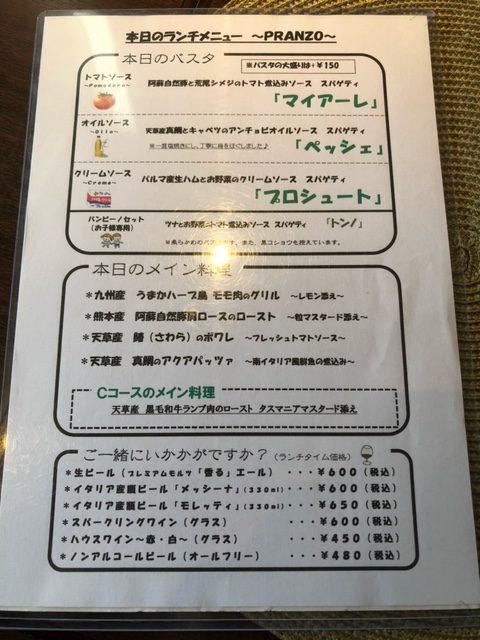 本日のランチメニュー ～PRANZO～
本日のパスタ
※パスタの大盛りは+¥150
トマトソース
～Pomodoro～
阿蘇自然豚と荒尾シメジのトマト煮込みソース スパゲティ
「マイアーレ」
オイルソース
～Olio～
天草産真鯛とキャベツのアンチョビオイルソース スパゲティ
※一度塩焼きにし、丁寧に身をほぐしました♪
「ペッシェ」
クリームソース
～Creme～
パルマ産生ハムとお野菜のクリームソース スパゲティ
「プロシュート」
バンビーノセット
(お子様専用)
ツナとお野菜のトマト煮込みソース スパゲティ 「トンノ」
※柔らかめのパスタです。また、黒コショウも控えています。
本日のメイン料理
＊九州産 うまかハーブ鳥 モモ肉のグリル ～レモン添え～
＊熊本産 阿蘇自然豚肩ロースのロースト ～粒マスタード添え～
＊天草産 鰆（さわら）のポワレ ～フレッシュトマトソース～
＊天草産 真鯛のアクアパッツァ ～南イタリア風鮮魚の煮込み～
Cコースのメイン料理
天草産 黒毛和牛ランプ肉のロースト タスマニアマスタード添え
ご一緒にいかがですか？（ランチタイム価格）
＊生ビール（プレミアムモルツ「香る」エール）・・・¥600（税込）
＊イタリア産瓶ビール「メッシーナ」(330ml)・・・¥600（税込）
＊イタリア産瓶ビール「モレッティ」(330ml)・・・¥650（税込）
＊スパークリングワイン（グラス）・・・¥600（税込）
＊ハウスワイン～赤・白～（グラス）・・・¥450（税込）
＊ノンアルコールビール（オールフリー）・・・¥480（税込）